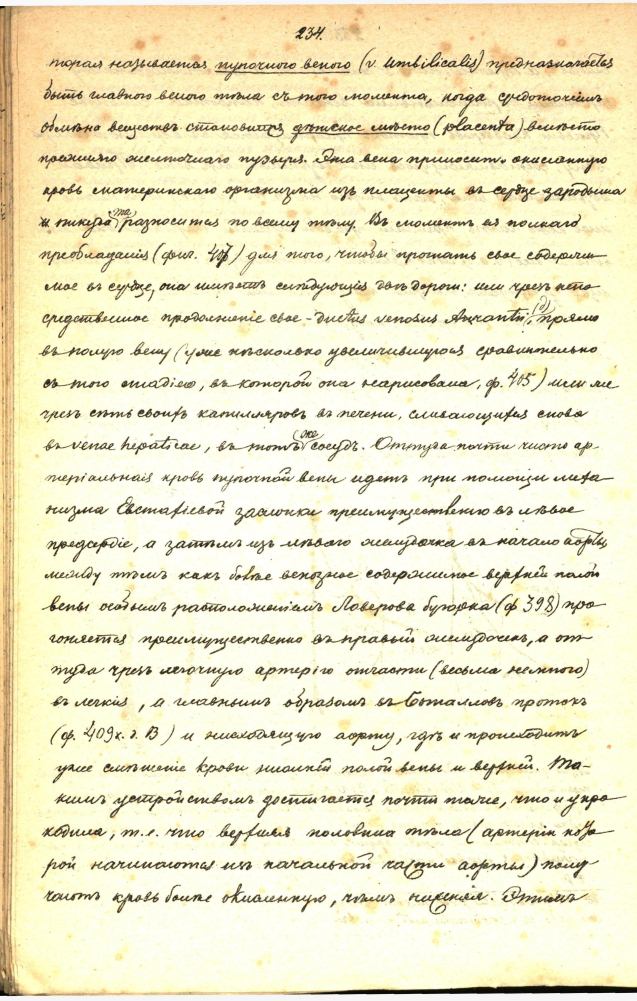 234.
торая называется пупочною веною (v. umbilicalis) предназначается
быть главною веною тѣла съ того момента, когда средоточіемъ
обмѣна веществъ становится дѣтское мѣсто (placenta) вмѣсто
прежняго желточнаго пузыря. Эта вена приноситъ окисленную
кровь материнскаго организма изъ плаценты въ сердце зародыша
и та разносится по всему тѣлу. Въ моментъ ея полнаго
преобладанія (фиг. 407) для того, чтобы прогнать свое содержи-
мое въ сердце, она имѣетъ слѣдующія двѣ дороги: или чрезъ непо-
средственное продолженіе свое - ductus venosus Aranti, (d) прямо
въ полую вену (уже нѣсколько увеличившуюся сравнительно
съ того стадіею, въ которой она нарисована, ф. 405) или же
чрезъ сѣть своихъ капилляровъ въ печени, сливающихся снова
въ venae hepaticae, въ тотъ же сосудъ. Оттуда почти чисто ар-
теріальная кровь пупочной вены идетъ при помощи меха
низма Евстафіевой заслонки преимущественно въ лѣвое
предсердіе, а затѣмъ изъ лѣваго желудочка въ начало аорты
между тѣмъ какъ болѣе венозное содержимое верхней полой
вены особымъ расположеніемъ Ловерова бугорка (ф 398) про
гоняется преимущественно въ правый желудочекъ, а от-
туда чрезъ легочную артерію отчасти (весьма немного)
въ легкія, а главнымъ образомъ въ Боталловъ протокъ
(ф. 409 х. д. В) и нисходящую аорту, гдѣ и происходитъ
уже смѣшеніе крови нижней полой вены и верхней. Та-
кимъ устройствомъ достигается почти тоже, что и у кро
кодила, т. е. что верхняя половина тѣла (артеріи кото
рой начинаются изъ начальной части аорты) полу
чаетъ кровь болѣе окисленную, чѣмъ нижняя. Этимъ